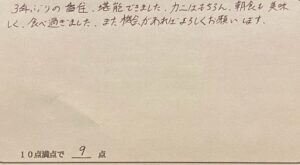 3年ぶりの当住、堪能できました。カニはもちろん、朝食も美味
しく、食べ過ぎました。また機会があればよろしくお願いします。
10点満点で 9 点